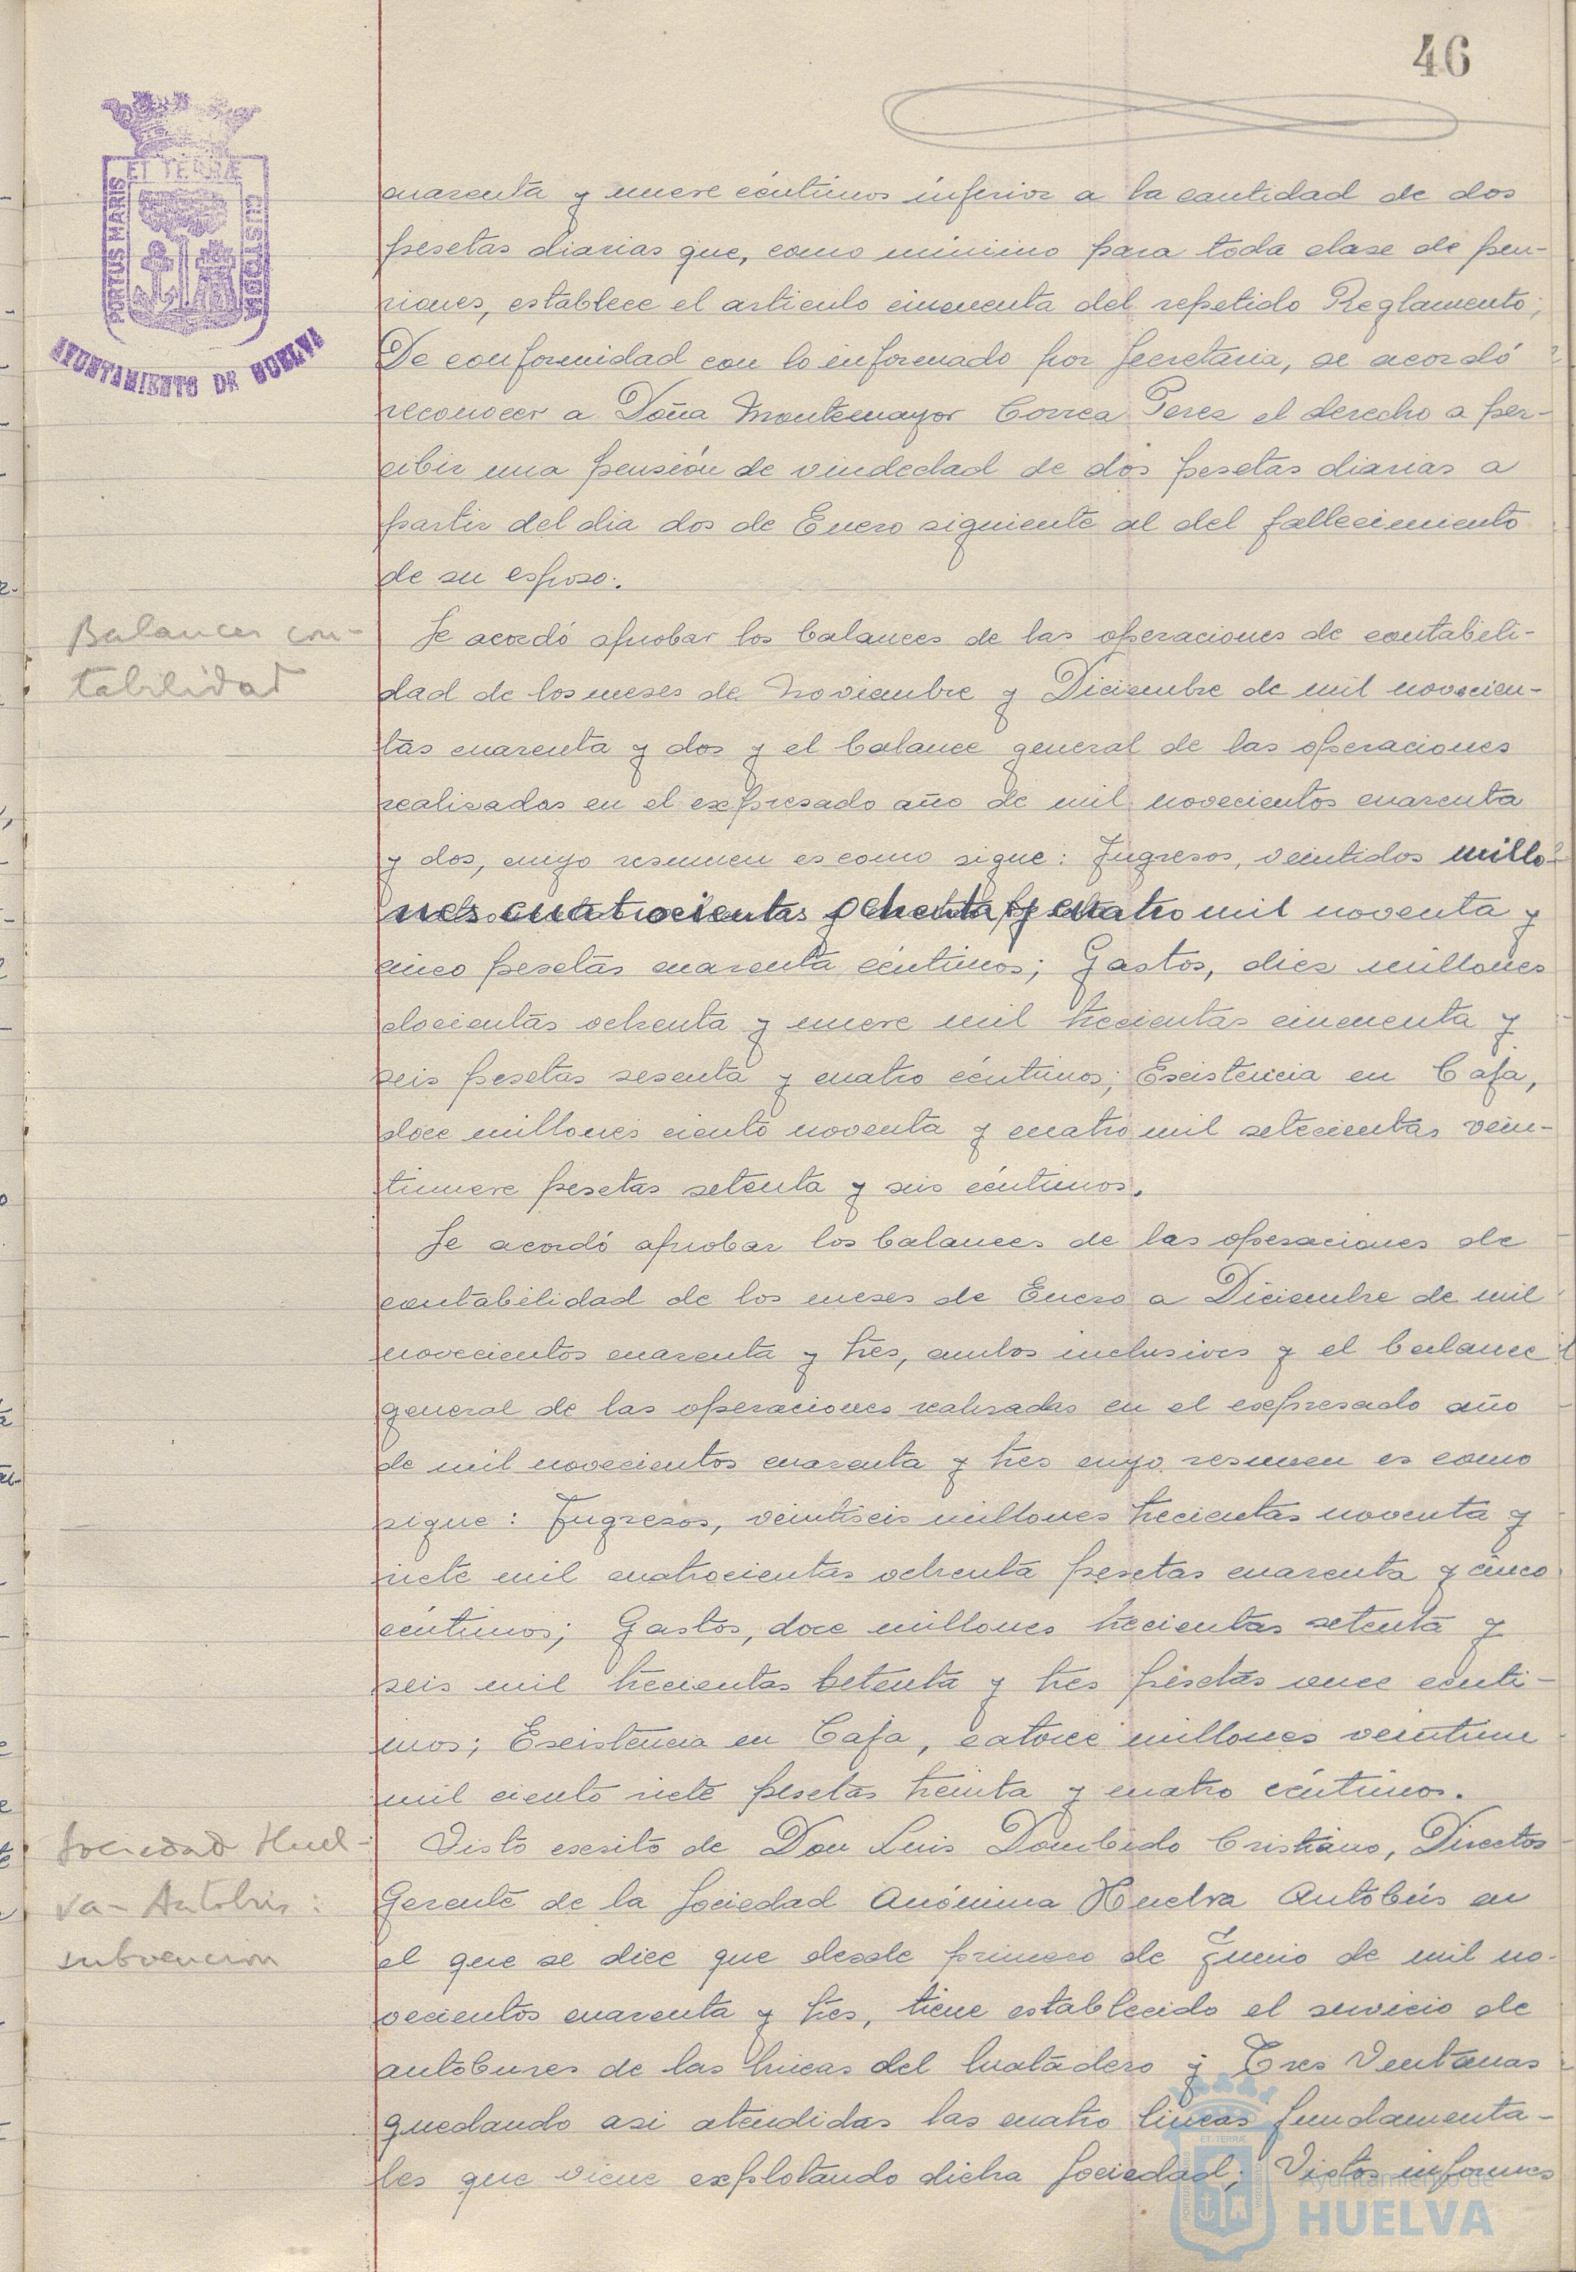 46
ET TERRÆ
PORTUS MARIS
CUSTODIA
AYUNTAMIENTO DE HUELVA
cuarenta y nueve céntimos inferior a la cantidad de dos
pesetas diarias que, como mínimo para toda clase de pen-
siones, establece el articulo cincuenta del repetido Reglamento;
De conformidad con lo informado por Secretaria, se acordó
reconocer a Doña Montemayor Correa Perez el derecho a per-
cibir una pensión de viudedad de dos pesetas diarias a
partir del dia dos de Enero siguiente al del fallecimiento
de su esposo.
Balances con-
tabilidad
Se acordó aprobar los balances de las operaciones de contabili-
dad de los meses de Noviembre y Diciembre de mil novecien-
tos cuarenta y dos y el balance general de las operaciones
realizadas en el expresado año de mil novecientos cuarenta
y dos, cuyo resumen es como sigue: Ingresos, veintidos millo-
nes cuatrocientas ochenta y cuatro mil noventa y
cinco pesetas cuarenta céntimos; Gastos, diez millones
docientas ochenta y nueve mil trecientas cincuenta y
seis pesetas sesenta y cuatro céntimos; Existencia en Caja,
doce millones ciento noventa y cuatro mil setecientas vein-
tinueve pesetas setenta y seis céntimos.
Se acordó aprobar los balances de las operaciones de
contabilidad de los meses de Enero a Diciembre de mil
novecientos cuarenta y tres, ambos inclusives y el balance
general de las operaciones realizadas en el expresado año
de mil novecientos cuarenta y tres cuyo resumen es como
sigue: Ingresos, veintiseis millones trecientas noventa y
siete mil cuatrocientas ochenta pesetas cuarenta y cinco
céntimos; Gastos, doce millones trecientas setenta y
seis mil trecientas setenta y tres pesetas once cénti-
mos; Existencia en Caja, catorce millones veintiun
mil ciento siete pesetas treinta y cuatro céntimos.
Sociedad Huel-
va-Autobús:
subvencion
Visto escrito de Don Luis Dombido Cristiano, Director
Gerente de la Sociedad Anónima Huelva Autobús en
el que se dice que desde primero de Junio de mil no-
vecientos cuarenta y tres, tiene establecido el servicio de
autobuses de las lineas del Matadero y Tres Ventanas
quedando asi atendidas las cuatro lineas fundamenta-
les que viene explotando dicha Sociedad; Vistos informes
Ayuntamiento de
HUELVA